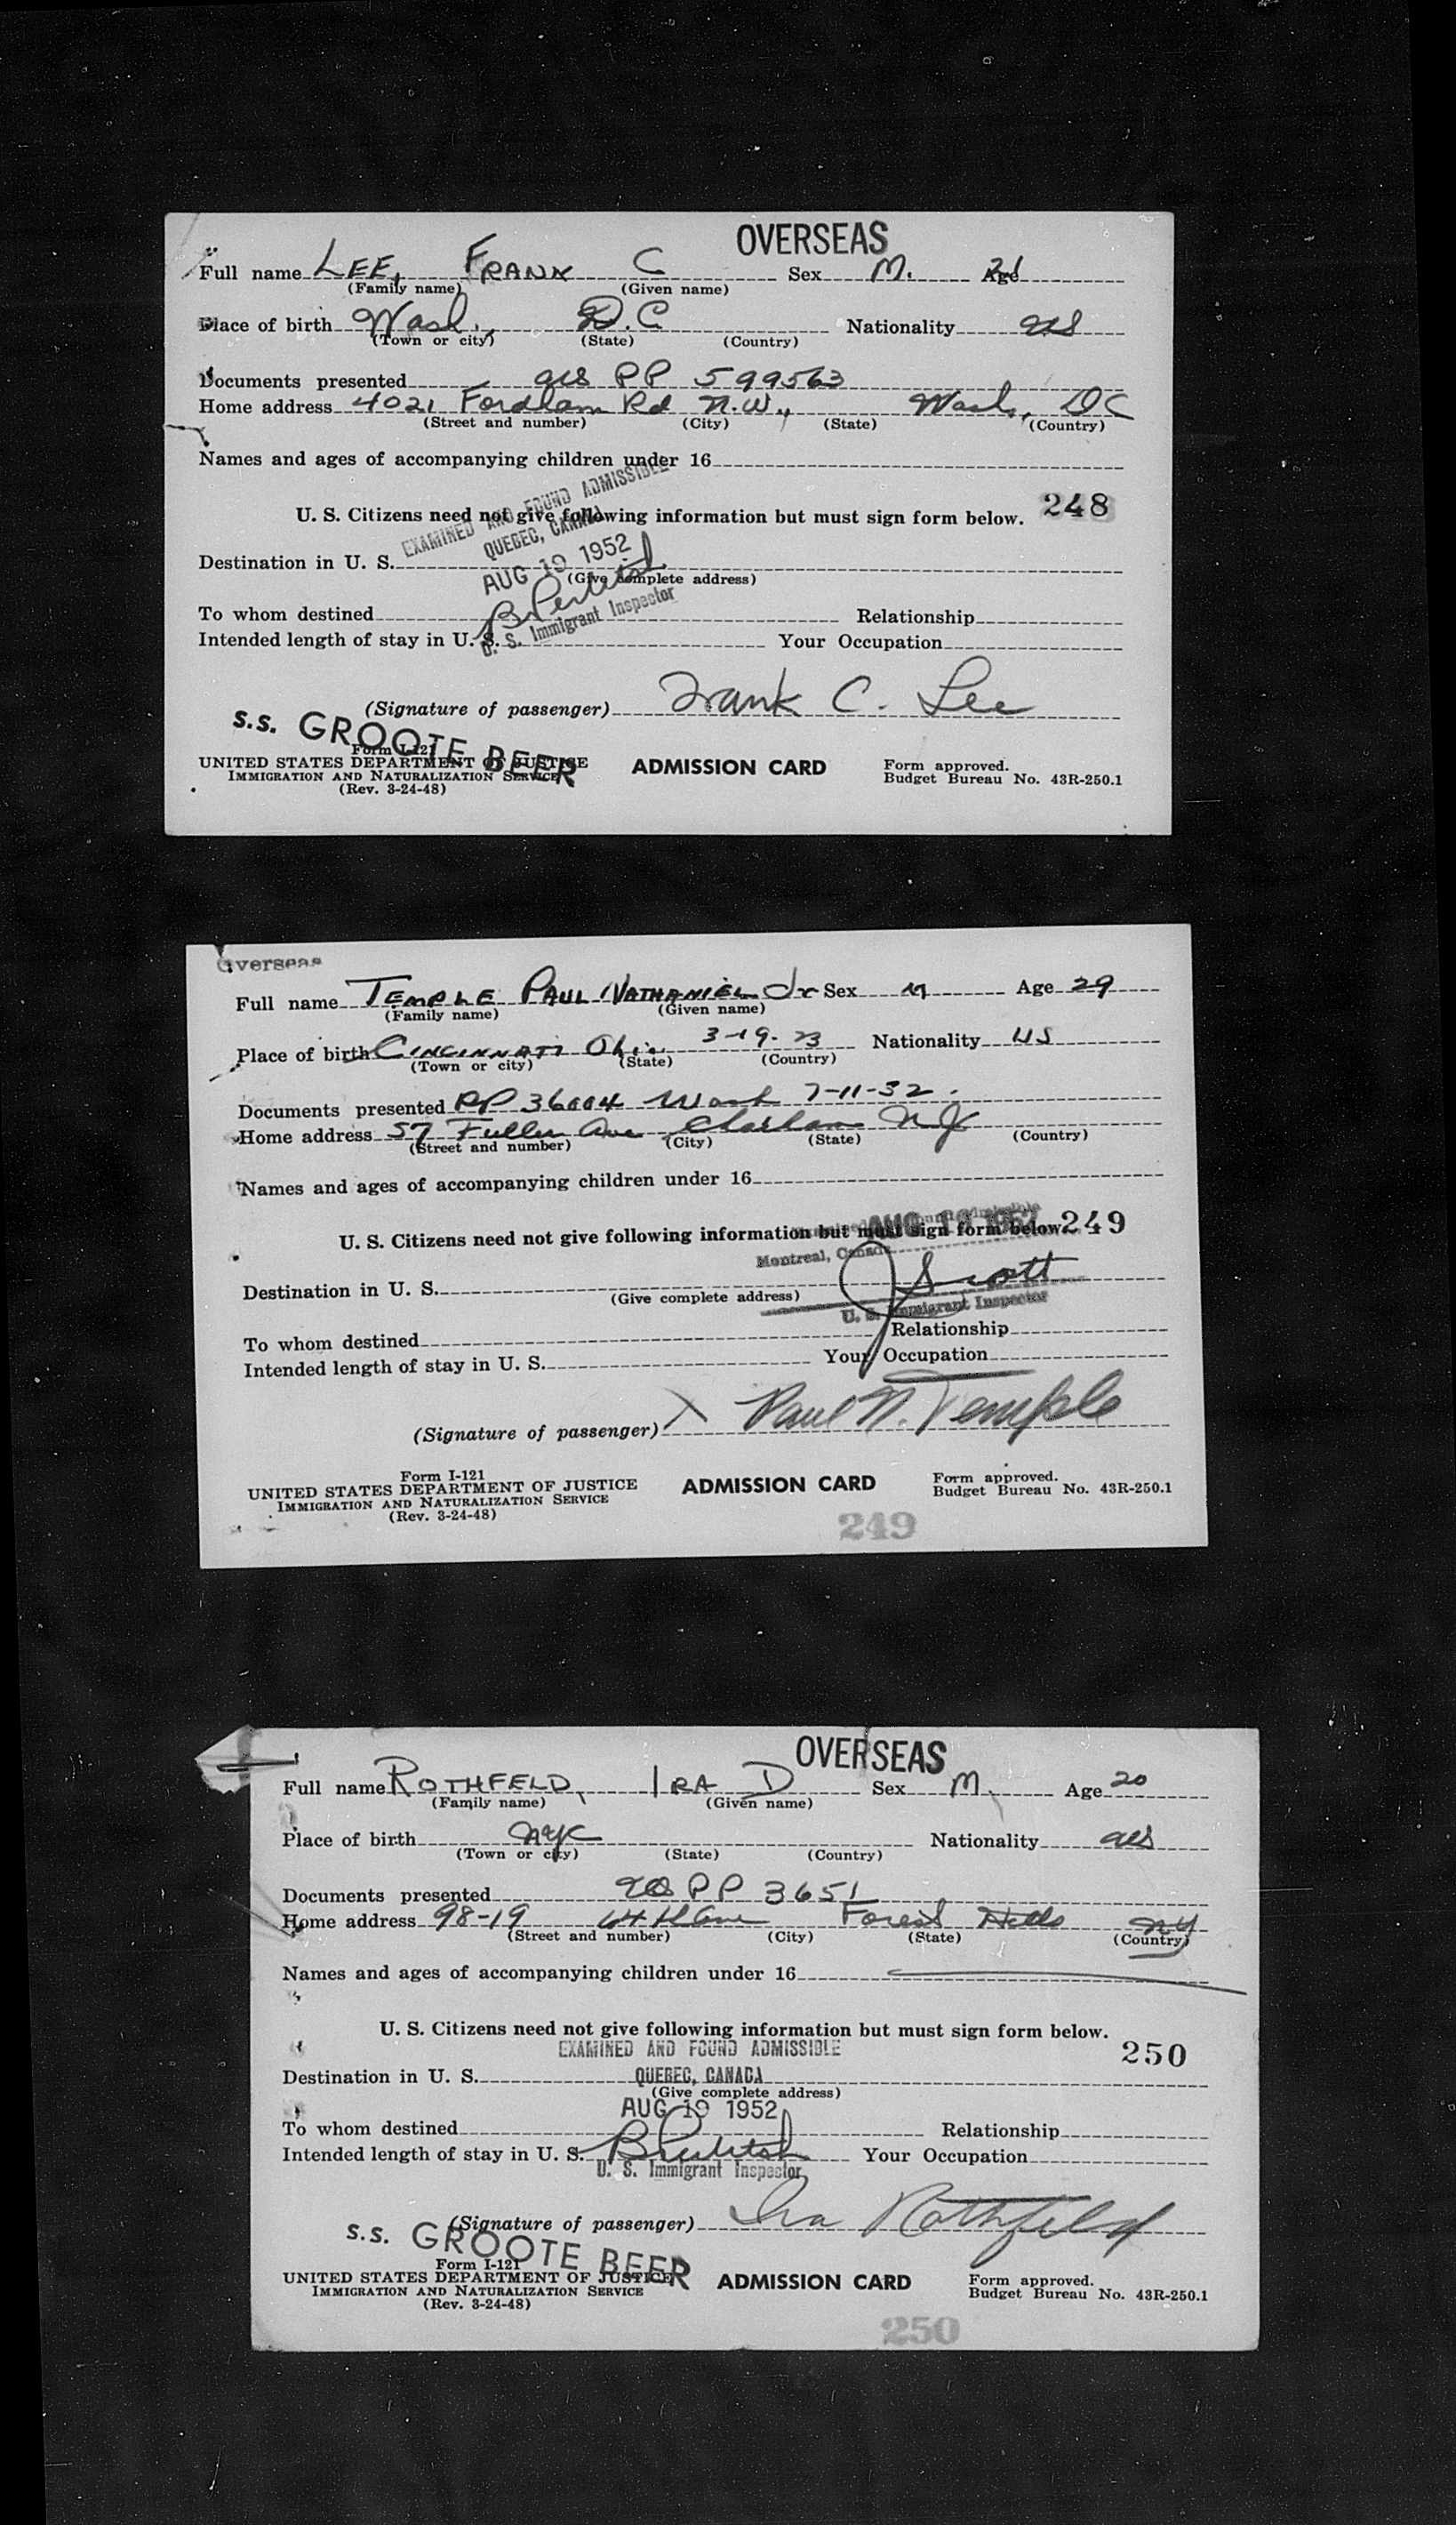 OVERSEAS
Full name LEE, FRANK C Sex M. Age 21
(Family name) (Given name)
Place of birth Wash., D.C Nationality US
(Town or city) (State) (Country)
Documents presented US PP 599563
Home address 4021 Fordham Rd N.W., Wash, DC
(Street and number) (City) (State) (Country)
Names and ages of accompanying children under 16
EXAMINED AND FOUND ADMISSIBLE
U. S. Citizens need not give following information but must sign form below. 248
QUEBEC, CANADA
Destination in U. S.
AUG 19 1952
(Give complete address)
To whom destined Relationship
U. S. Immigrant Inspector
Intended length of stay in U. S. Your Occupation
(Signature of passenger) Frank C. Lee
S.S. GROOTE BEER
Form I-121
UNITED STATES DEPARTMENT OF JUSTICE ADMISSION CARD Form approved.
IMMIGRATION AND NATURALIZATION SERVICE Budget Bureau No. 43R-250.1
(Rev. 3-24-48)
Overseas
Full name TEMPLE PAUL NATHANIEL Jr Sex M Age 29
(Family name) (Given name)
Place of birth CINCINNATI Ohio 3-19-23 Nationality US
(Town or city) (State) (Country)
Documents presented PP Wash
Home address 57 Fuller Ave Chatham NJ
(Street and number) (City) (State) (Country)
Names and ages of accompanying children under 16
U. S. Citizens need not give following information but must sign form below 249
Montreal, Canada
Destination in U. S. J Scott
(Give complete address)
U. S. Immigrant Inspector
To whom destined Relationship
Intended length of stay in U. S. Your Occupation
(Signature of passenger) X Paul N. Temple
Form I-121
UNITED STATES DEPARTMENT OF JUSTICE ADMISSION CARD Form approved.
IMMIGRATION AND NATURALIZATION SERVICE Budget Bureau No. 43R-250.1
(Rev. 3-24-48)
249
OVERSEAS
Full name ROTHFELD, IRA D Sex M. Age 20
(Family name) (Given name)
Place of birth NYC Nationality US
(Town or city) (State) (Country)
Documents presented US PP 3651
Home address 98-19 64th Ave Forest Hills NY
(Street and number) (City) (State) (Country)
Names and ages of accompanying children under 16
U. S. Citizens need not give following information but must sign form below.
EXAMINED AND FOUND ADMISSIBLE 250
Destination in U. S. QUEBEC, CANADA
(Give complete address)
AUG 19 1952
To whom destined Relationship
Intended length of stay in U. S. Your Occupation
U. S. Immigrant Inspector
(Signature of passenger) Ira Rothfeld
S.S. GROOTE BEER
Form I-121
UNITED STATES DEPARTMENT OF JUSTICE ADMISSION CARD Form approved.
IMMIGRATION AND NATURALIZATION SERVICE Budget Bureau No. 43R-250.1
(Rev. 3-24-48)
250